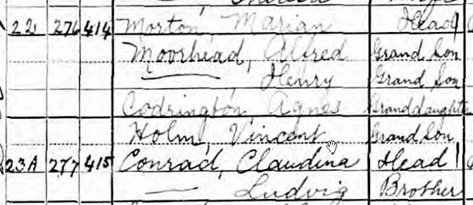 22 276 414 Morton, Marian Head
Moorhead, Alfred Grand Son
—— Henry Grand Son
Codrington Agnes Granddaughter
Holm, Vincent Grand Son
23A 277 415 Conrad, Claudina Head 1
—— Ludvig Brother